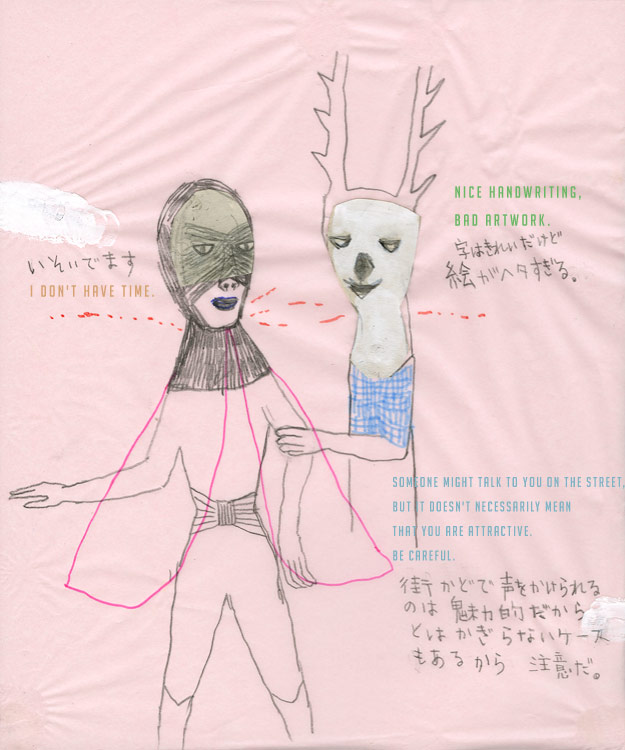 NICE HANDWRITING,
BAD ARTWORK.
字はきれいだけど
絵がヘタすぎる。
いそいでます
I DON'T HAVE TIME.
SOMEONE MIGHT TALK TO YOU ON THE STREET,
BUT IT DOESN'T NECESSARILY MEAN
THAT YOU ARE ATTRACTIVE.
BE CAREFUL.
街かどで声をかけられる
のは魅力的だから
とはかぎらないケース
もあるから 注意だ。